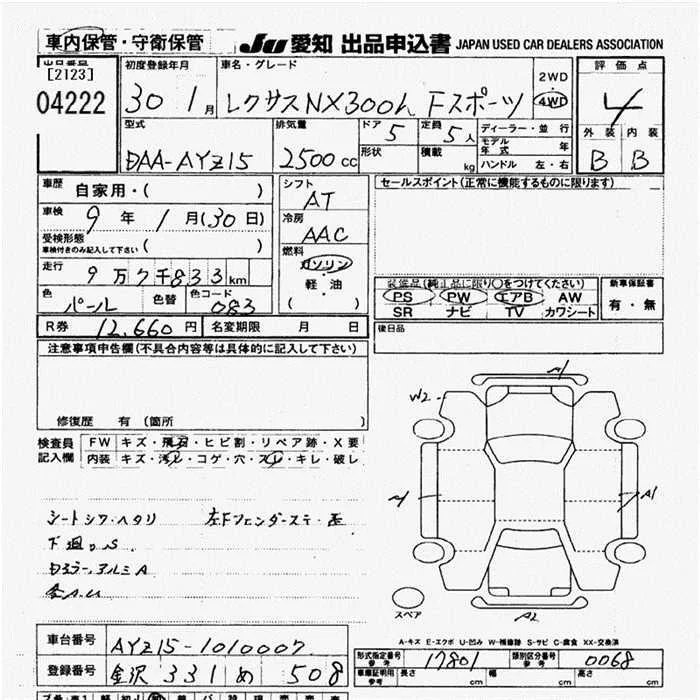 車内保管・守衛保管 JU 愛知 出品申込書 JAPAN USED CAR DEALERS ASSOCIATION
出品番号 初度登録年月 車名・グレード 評価点
[2123]
04222 30 1月 レクサスNX300h Fスポーツ 2WD 4WD 4
型式 排気量 ドア 5 定員 5人 ディーラー・並行 外装 内装
モデル年式 年
DAA-AYZ15 2500cc 形状 積載 kg ハンドル 左・右 B B
車歴 自家用・( ) シフト セールスポイント(正常に機能するものに限ります)
AT
車検 9年 1月(30日) 冷房
受検形態 AAC
車検付きのみ記入して下さい ( ) 燃料
走行 9万7千833km ガソリン 装備品(純正品に限り○をつけてください) 新車保証書
軽・油 PS PW エアB AW 有・無
色 パール 色替 色コード 083 ( ) SR ナビ TV カワシート
R券 12,660円 名変期限 月 日 後日品
注意事項申告欄(不具合内容等は具体的に記入して下さい)
修復歴 有 (箇所
検査員 FW キズ・飛石・ヒビ割・リペア跡・X要
記入欄 内装 キズ・汚レ・コゲ・穴・スレ・キレ・破レ
W2
A1
A1
シートシワ・ヘタリ
下廻り.S
スペア
A2
A-キズ E-エクボ U-凹み W-補修跡 S-サビ C-腐食 XX-交換済
車台番号 AYZ15-1010007 形式指定番号 参考 17801 類別区分番号 参考 0068
登録番号 金沢 331 め 508 車庫証明用 参考 長さ cm 幅 cm 高さ cm